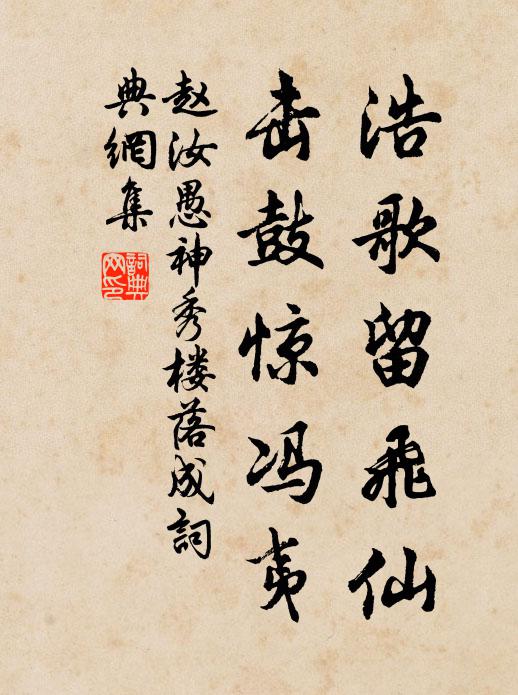 浩歌留飛仙
击鼓惊冯夷
赵汝愚神秀楼落成詞
典網集
詞典
网印